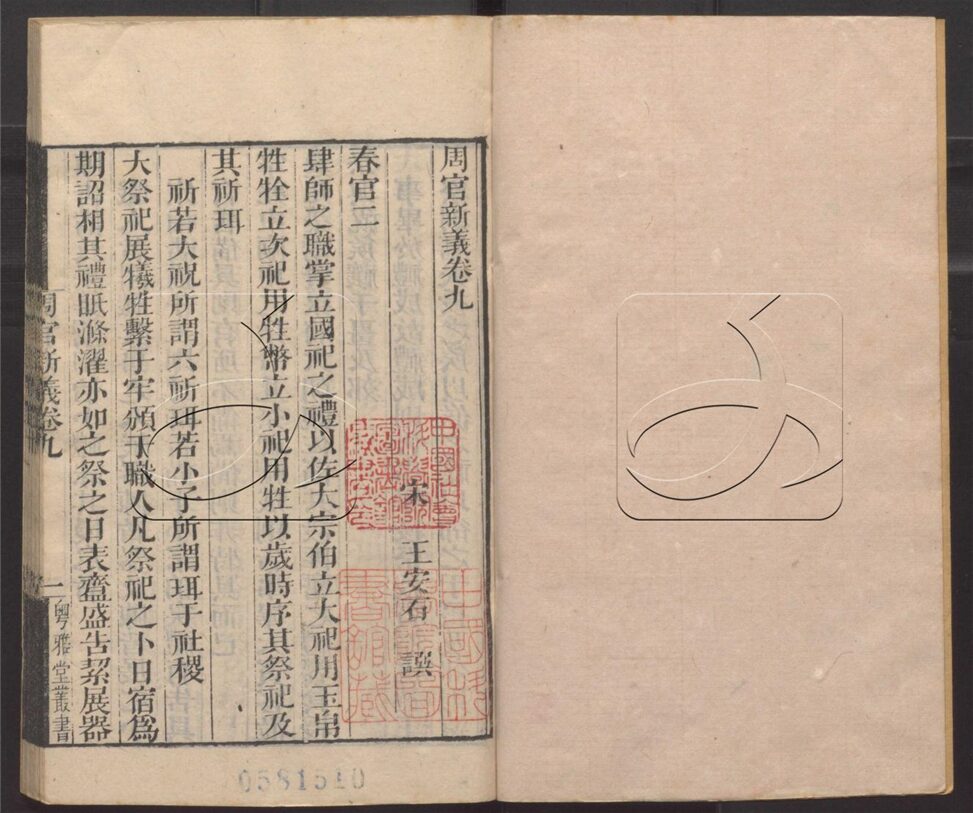 周官新義卷九
宋 王安石 譔
春官二
肆師之職掌立國祀之禮以佐大宗伯立大祀用玉帛
牲牷立次祀用牲幣立小祀用牲以歲時序其祭祀及
其祈珥
祈若大祝所謂六祈珥若小子所謂珥于社稷
大祭祀展犧牲繫于牢頒于職人凡祭祀之卜日宿爲
期詔相其禮眡滌濯亦如之祭之日表齍盛告絜展器
周官新義卷九
一 粵雅堂叢書
0581510